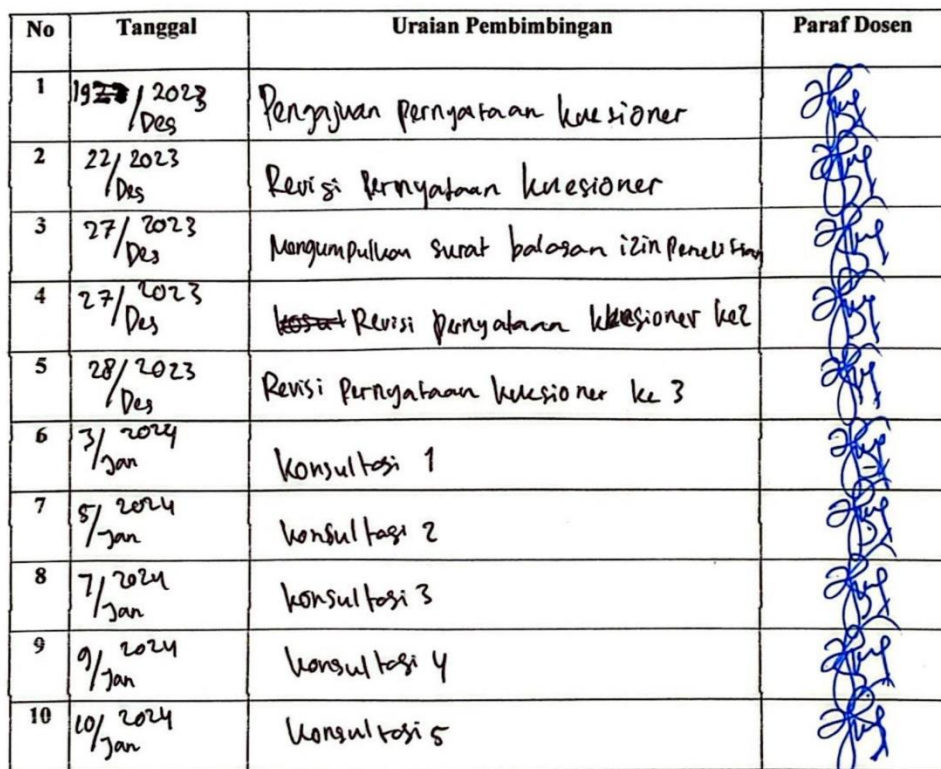 No Tanggal Uraian Pembimbingan Paraf Dosen
1 19/Des 2023 Pengajuan pernyataan kuesioner
2 22/Des 2023 Revisi Pernyataan kuesioner
3 27/Des 2023 Mengumpulkan surat balasan izin penelitian
4 27/Des 2023 Revisi pernyataan kuesioner ke2
5 28/Des 2023 Revisi Pernyataan kuesioner ke 3
6 3/Jan 2024 konsultasi 1
7 5/Jan 2024 konsultasi 2
8 7/Jan 2024 konsultasi 3
9 9/Jan 2024 konsultasi 4
10 10/Jan 2024 konsultasi 5